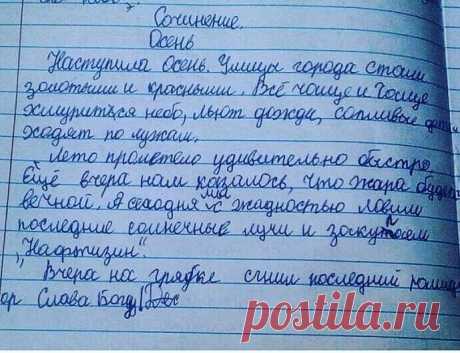 Сочинение.
Осень
Наступила Осень. Улицы города стали
золотыми и красными. Всё чаще и чаще
хмуриться небо, льют дожди, сопливые дети
ходят по лужам.
Лето пролетело удивительно быстро
Ещё вчера нам казалось, что жара будет
вечной. А сегодня мы с жадностью ловим
последние солнечные лучи и закупаем
"Нафтизин".
Вчера на грядке сгнил последний помид
ор Слава Богу
postila.ru